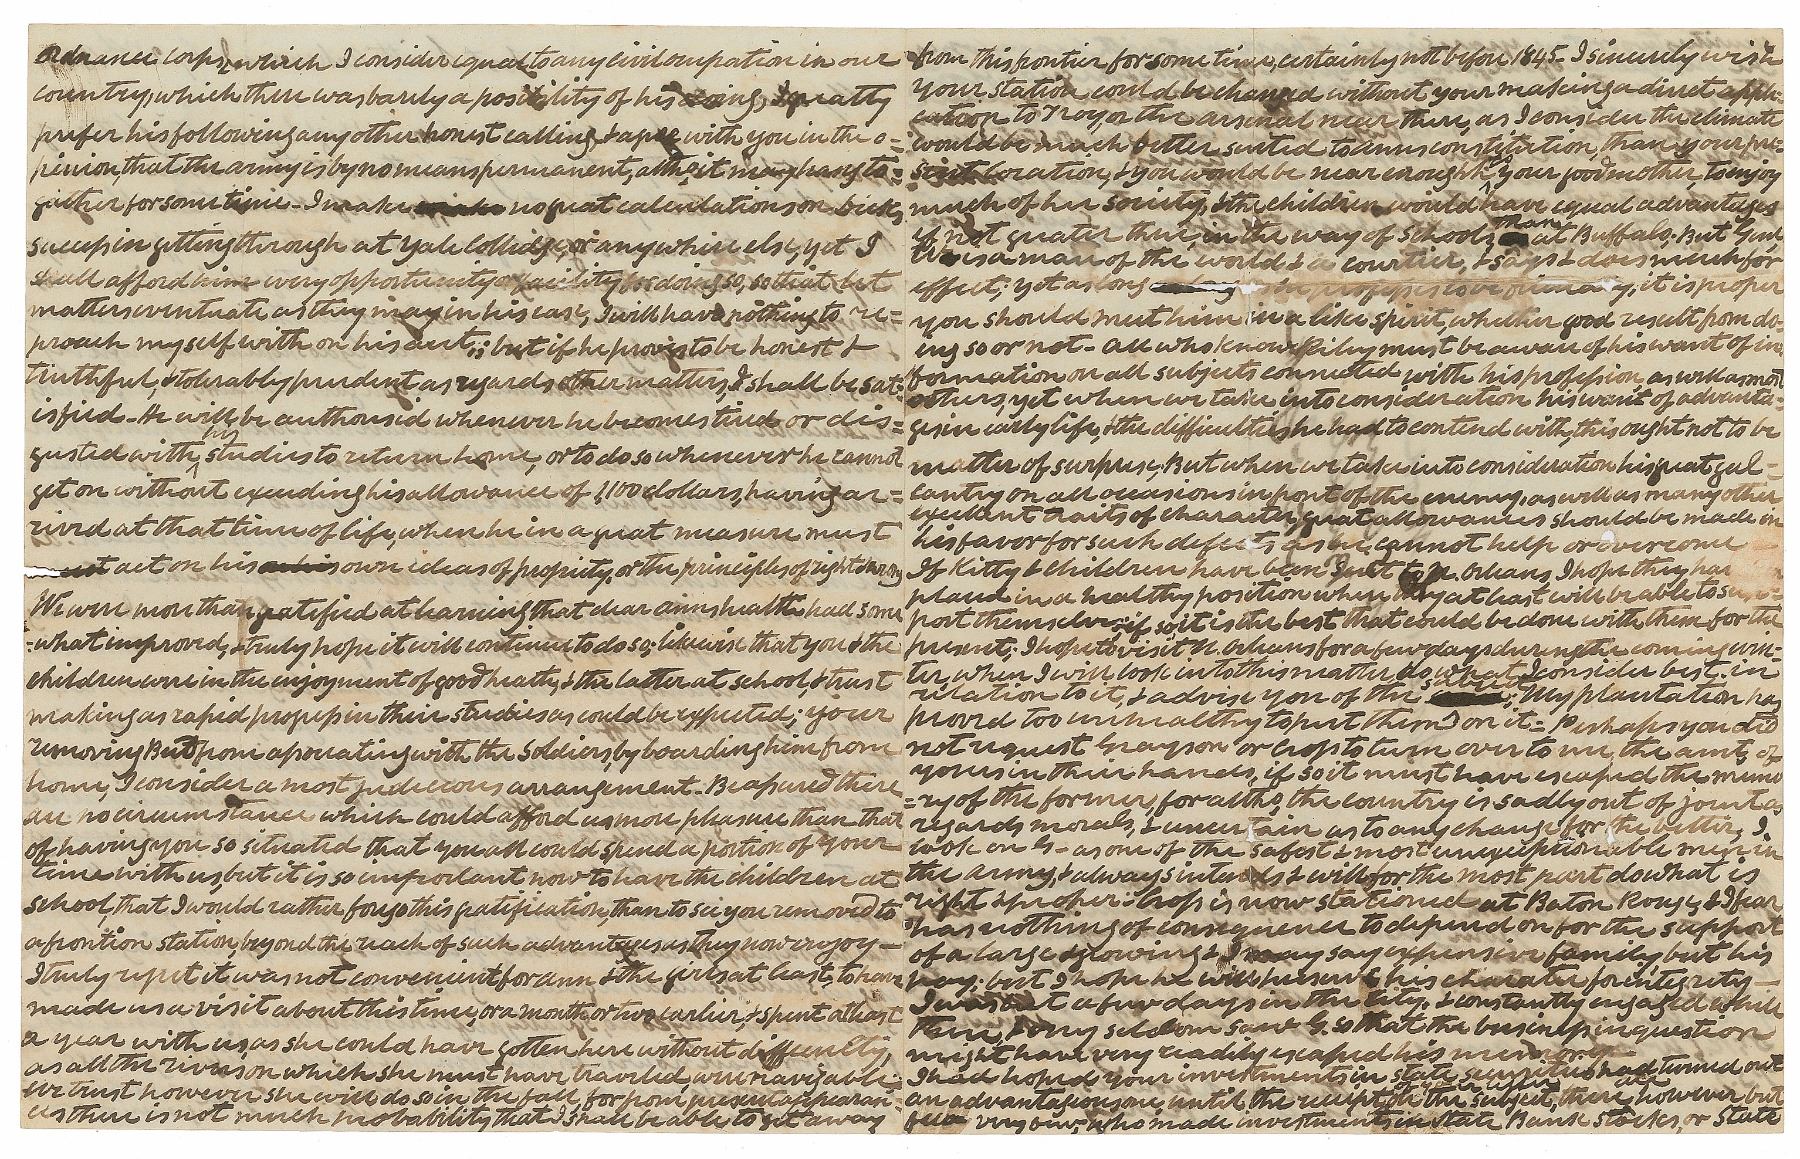 ordnance corps, which I consider equal to any civil occupation in our
country, which there was barely a possibility of his doing, I greatly
prefer his following any other honest calling, & agree with you in the o=
pinion, that the army is by no means permanent, altho, it may hang to=
gether for some time. I make no great calculations on Dicks,
success in getting through at Yale Colledge, or any where else, yet I
shall afford him every opportunity or facility for doing so, so that let
matters eventuate as they may in his case, I will have nothing to re=
proach myself with on his acct,; but if he proves to be honest &
truthful, & tolerably prudent as regards other matters, I shall be sat=
isfied. He will be authorised whenever he becomes tired or dis=
gusted with his studies to return home, or to do so whenever he cannot
get on without exceeding his allowance of 1,100 dollars, having ar=
rived at that time of life, when he in a great measure must
act on his own ideas of propriety, or the principles of right & wrong
We were more than gratified at learning that dear anns health had some
-what improved, & truly hope it will continue to do so; likewise that you & the
children were in the enjoyment of good health, & the latter at school, & trust
making as rapid progress in their studies as could be expected; your
removing But from associating with the Soldiers, by boarding him from
home, I consider a most judiceous arrangement. Be assured there
are no circumstance which could afford us more pleasure than that
of having you so situated that you all could spend a portion of your
time with us, but it is so important now to have the children at
school, that I would rather forgo this gratification, than to see you removed to
a frontier station, beyond the reach of such advantages as they now enjoy —
I truly regret it was not convenient for ann & the girls at least, to have
made us a visit about this time, or a month or two earlier, & spent at least
a year with us, as she could have gotten here without difficulty,
as all the rivers on which she must have traveled were navigable.
We trust however she will do so in the fall, for from present appearan=
ces there is not much probability that I shall be able to get away
from this frontier for some time, certainly not before 1845. I sincerely wish
your station could be changed without your making a direct appli=
cation to Troy, or the arsenal near there, as I consider the climate
would be much better suited to anns constitution, than your pre=
sent location, & you would be near enough your good mother, to enjoy
much of her society, & the children would have equal advantages
if not greater than in the way of schools, than at Buffalo. But Genl
is a man of the world & a courtier, & says & does much for
effect; yet as long he professes to be friendly, it is proper
you should meet him in a like spirit, whether good result from do=
ing so or not. all who know Riley must be aware of his want of in
formation on all subjects connected with his profession, as well as most
others, yet when we take into consideration his want of advanta=
ges in early life, & the difficulties he had to contend with, this ought not to be
matter of surprise. But when we take into consideration his great gal=
lantry on all occasions in front of the enemy, as well as many other
excellent traits of character, great allowances should be made in
his favor for such defects as he cannot help or overcome
If Kitty & children have been sent to N. Orleans, I hope they have
placed in a healthy position where they at least will be able to sup=
port themselves; if so it is the best that could be done with them for the
present; I hope to visit N. Orleans for a few days during the coming win=
ter, when I will look into this matter, do what I consider best in
relation to it, & advise you of the ; My plantation has
proved too unhealthy to put them on it = Perhaps you did
not request Grayson or Cross to turn over to me, the amt, of
yours in their hands, if so it must have escaped the memo
=ry of the former, for altho, the country is sadly out of joint as
regards morals, & uncertain as to any change for the better, I
look on G- as one of the safest & most unexceptionable men in
the army, & always intends & will for the most part do what is
right & proper. Cross is now stationed at Baton Rouge, & I fear
has nothing of consequence to depend on for the support
of a large & growing & I may say expensive family but his
pay; but I hope he will preserve his character for integrity —
I was but a few days in the city, & constantly engaged while
there, & very seldom saw G. so that the business in question
might have very readily escaped his memory
I had hoped your investments in state securities had turned out
an advantageous one, until the receipt of your letter on the subject, there are however but
few very few, who made investments in state Bank stocks, or State